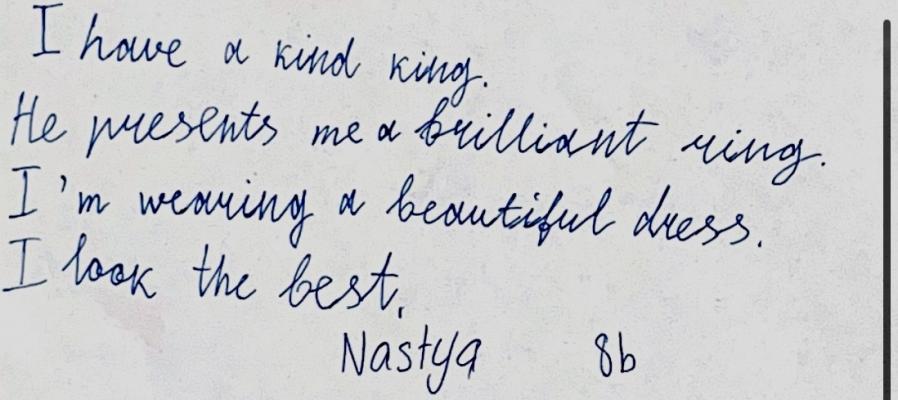 I have a kind king.
He presents me a brilliant ring.
I'm wearing a beautiful dress.
I look the best.
Nastya 8b